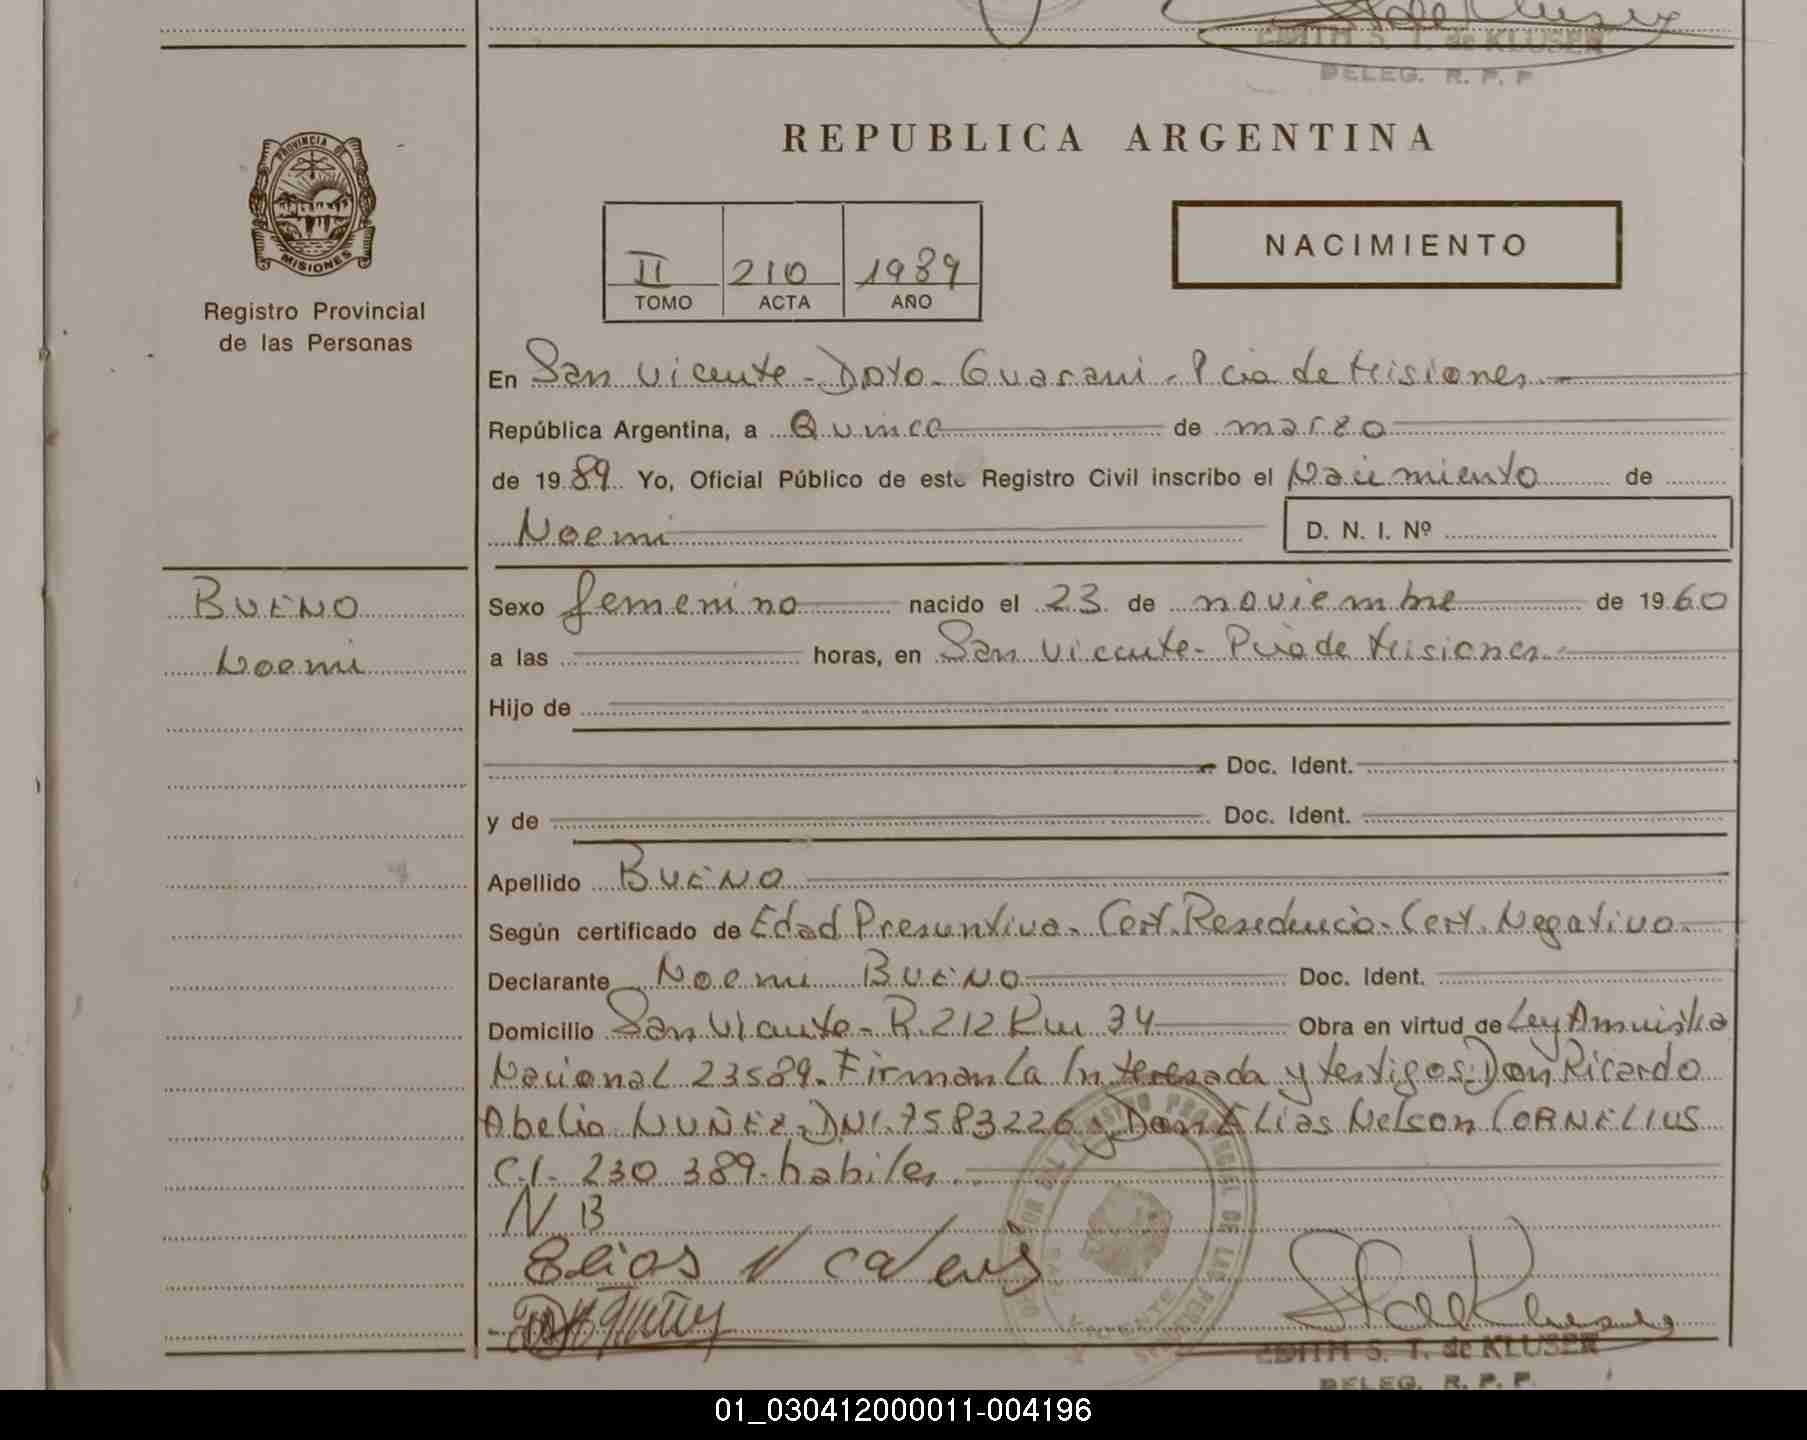 EDITH S. T. de KLUSER
DELEG. R. P. P
REPUBLICA ARGENTINA
PROVINCIA DE
MISIONES
Registro Provincial
de las Personas
II 210 1989
TOMO ACTA AÑO
NACIMIENTO
En San Vicente - Dpto. Guarani - Pcia de Misiones
República Argentina, a Quince de marzo
de 1989 Yo, Oficial Público de este Registro Civil inscribo el Nacimiento de
Noemi D. N. I. Nº
BUENO
Noemi
Sexo femenino nacido el 23 de noviembre de 1960
a las horas, en San Vicente - Pcia de Misiones
Hijo de
Doc. Ident.
y de Doc. Ident.
Apellido BUENO
Según certificado de Edad Presuntiva - Cert. Residencia - Cert. Negativo
Declarante Noemi BUENO Doc. Ident.
Domicilio San Vicente - R. 212 Km 34 Obra en virtud de Ley Amnistia
Nacional 23589. Firman La Interesada y testigos: Don Ricardo
Abelio NUÑEZ - DNI. 7583226 y Don Elias Nelson CORNELIUS
C.I. 230 389 - habiles
N B
Elias N
EDITH S. T. de KLUSER
DELEG. R. P. P.
01_030412000011-004196